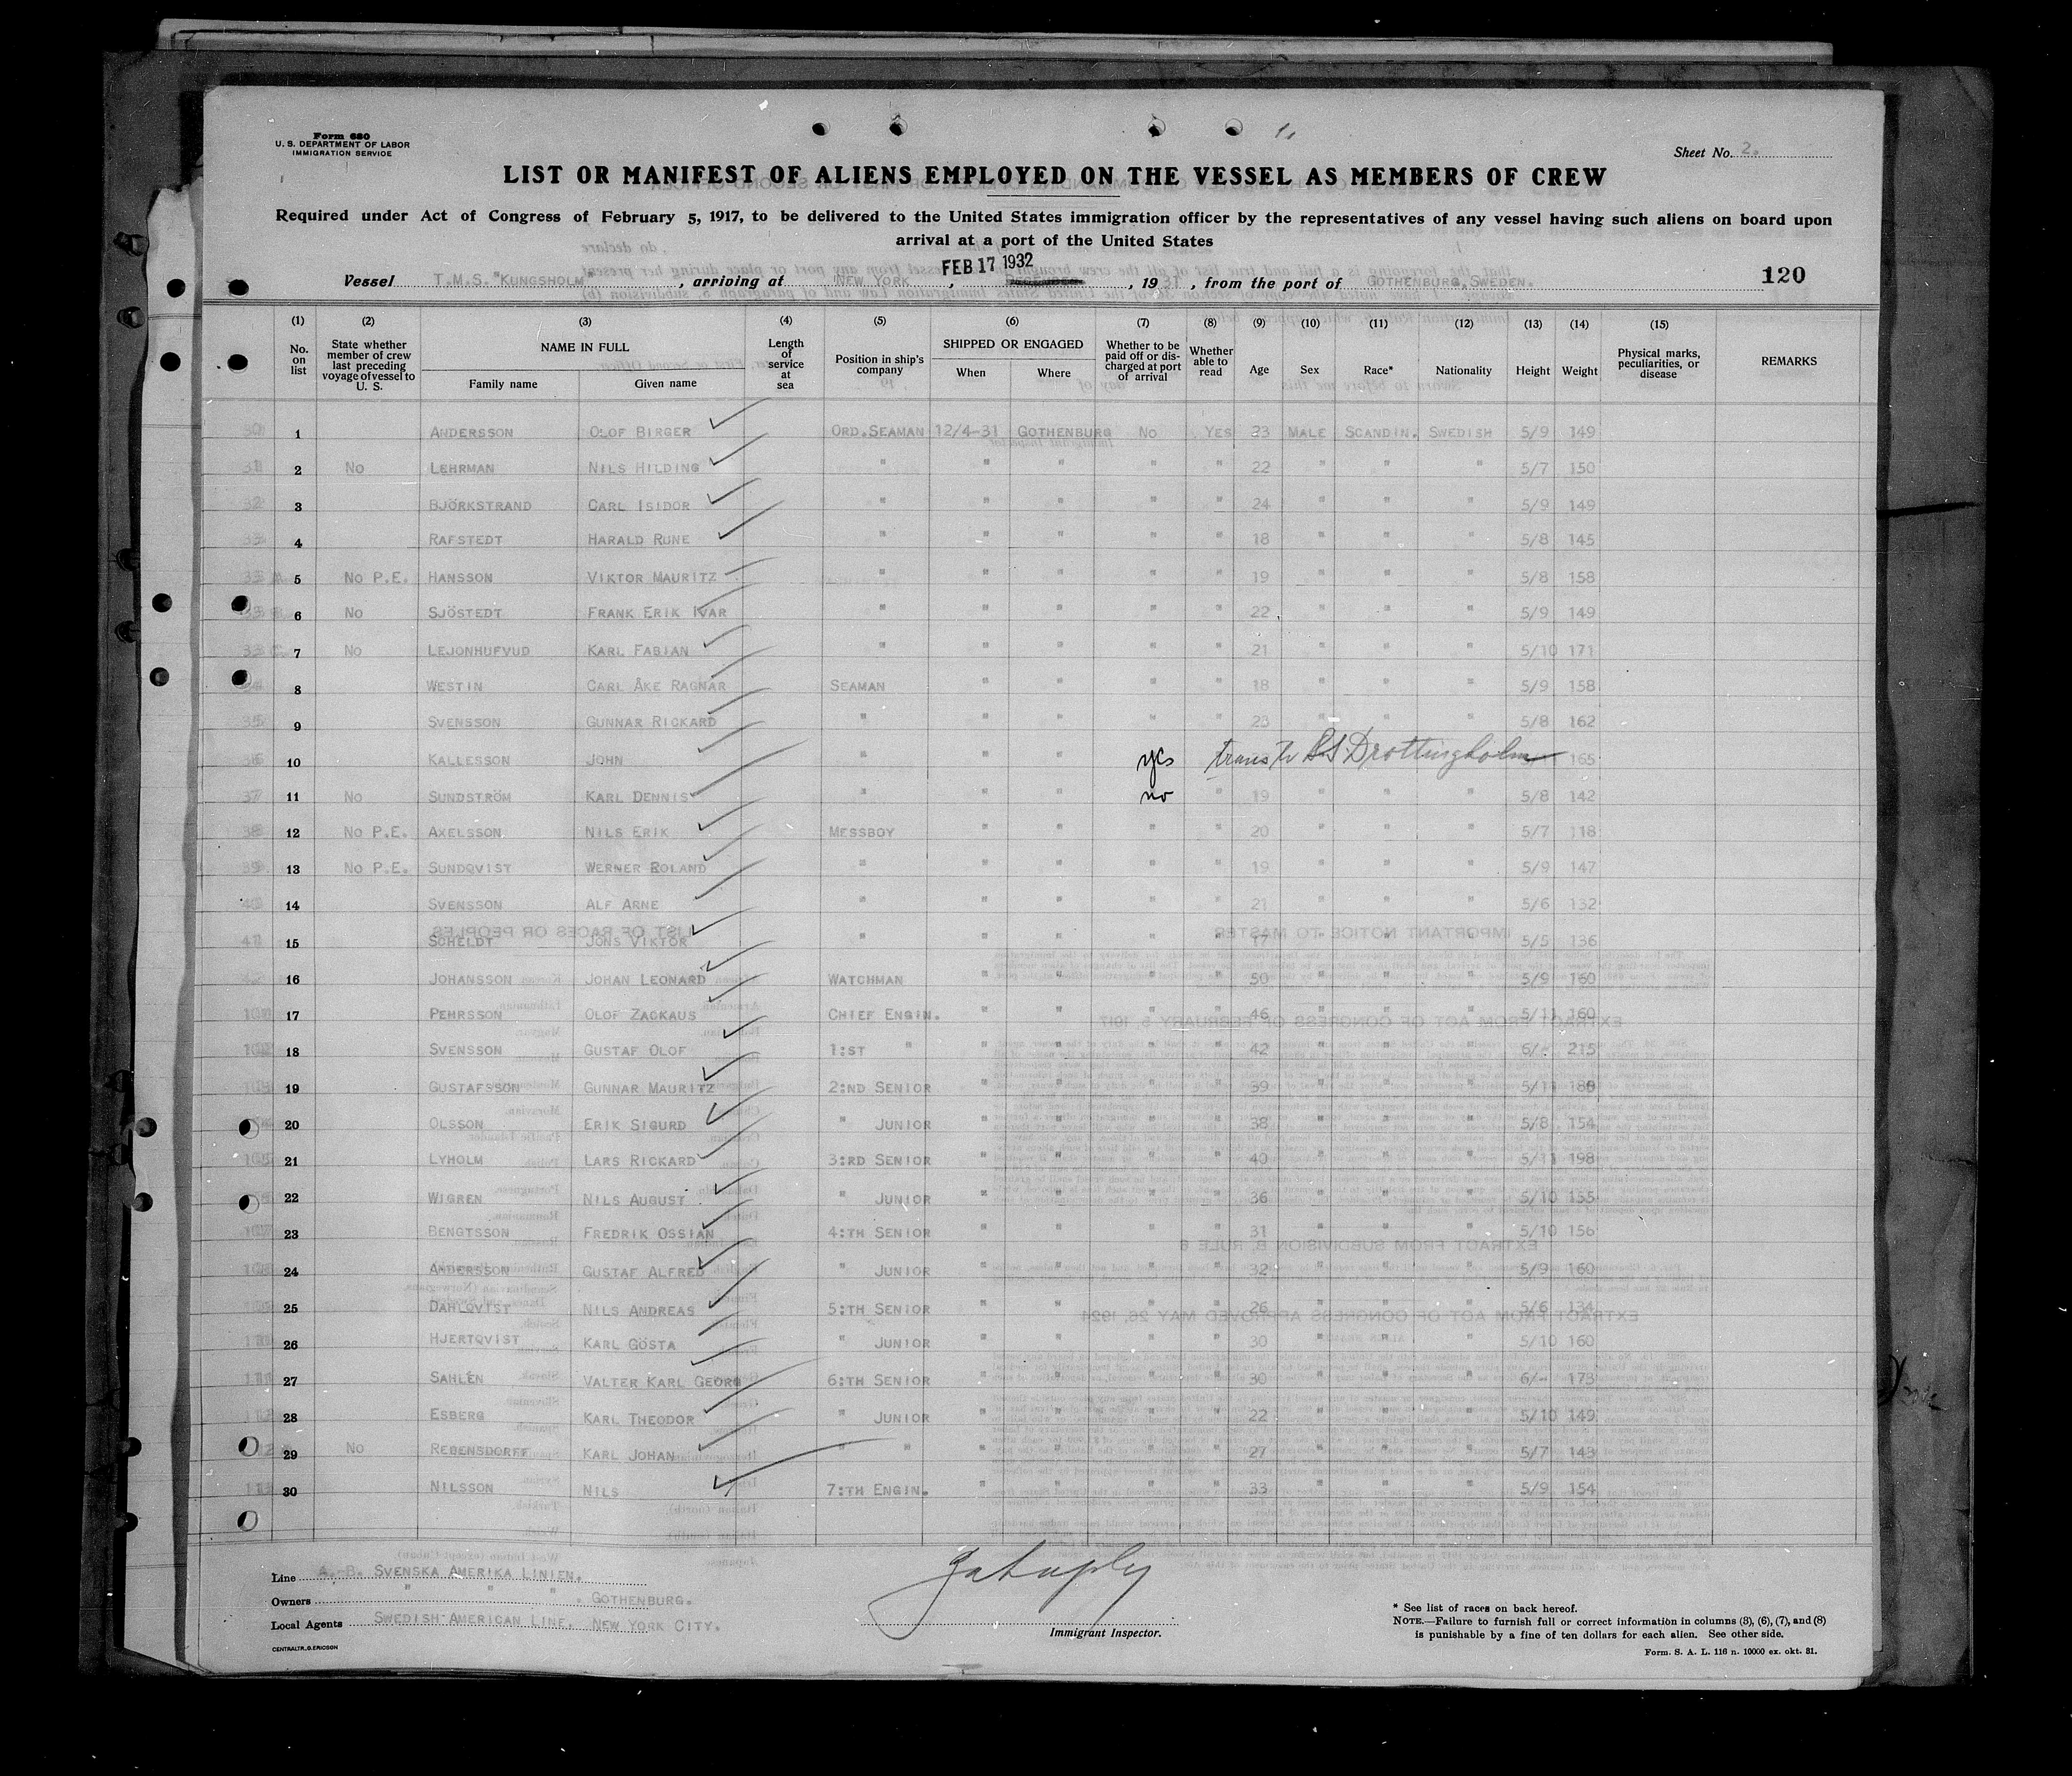 Form 680
U. S. DEPARTMENT OF LABOR
IMMIGRATION SERVICE
Sheet No. 2.
LIST OR MANIFEST OF ALIENS EMPLOYED ON THE VESSEL AS MEMBERS OF CREW
Required under Act of Congress of February 5, 1917, to be delivered to the United States immigration officer by the representatives of any vessel having such aliens on board upon
arrival at a port of the United States
FEB 17 1932
Vessel T.M.S. "KUNGSHOLM", arriving at NEW YORK, DECEMBER, 1931, from the port of GOTHENBURG, SWEDEN. 120
(1) (2) (3) (4) (5) (6) (7) (8) (9) (10) (11) (12) (13) (14) (15)
No. on list State whether member of crew last preceding voyage of vessel to U. S. NAME IN FULL Family name Given name Length of service at sea Position in ship's company SHIPPED OR ENGAGED When Where Whether to be paid off or discharged at port of arrival Whether able to read Age Sex Race* Nationality Height Weight Physical marks, peculiarities, or disease REMARKS
30 1 ANDERSSON OLOF BIRGER ORD.SEAMAN 12/4-31 GOTHENBURG NO YES 23 MALE SCANDIN. SWEDISH 5/9 149
31 2 NO LEHRMAN NILS HILDING " " " " " 22 " " " 5/7 150
32 3 BJÖRKSTRAND CARL ISIDOR " " " " " 24 " " " 5/9 149
33 4 RAFSTEDT HARALD RUNE " " " " " 18 " " " 5/8 145
5 NO P.E. HANSSON VIKTOR MAURITZ " " " " " 19 " " " 5/8 158
6 NO SJÖSTEDT FRANK ERIK IVAR " " " " " 22 " " " 5/9 149
7 NO LEJONHUFVUD KARL FABIAN " " " " " 21 " " " 5/10 171
34 8 WESTIN CARL ÅKE RAGNAR SEAMAN " " " " 18 " " " 5/9 158
35 9 SVENSSON GUNNAR RICKARD " " " " " 23 " " " 5/8 162
36 10 KALLESSON JOHN " " " yes trans to SS Drottningholm 165
37 11 NO SUNDSTRÖM KARL DENNIS " " " no " 19 " " " 5/8 142
38 12 NO P.E. AXELSSON NILS ERIK MESSBOY " " " " 20 " " " 5/7 118
39 13 NO P.E. SUNDQVIST WERNER ROLAND " " " " " 19 " " " 5/9 147
40 14 SVENSSON ALF ARNE " " " " " 21 " " " 5/6 132
41 15 SCHELDT JÖNS VIKTOR " " " " " 17 " " " 5/5 136
16 JOHANSSON JOHAN LEONARD WATCHMAN " " " " 50 " " " 5/9 160
17 PEHRSSON OLOF ZACKAUS CHIEF ENGIN. " " " " 46 " " " 5/11 160
18 SVENSSON GUSTAF OLOF 1:ST " " " " " 42 " " " 6/- 215
19 GUSTAFSSON GUNNAR MAURITZ 2:ND SENIOR " " " " 39 " " " 5/11
20 OLSSON ERIK SIGURD " JUNIOR " " " " 38 " " " 5/8 154
21 LYHOLM LARS RICKARD 3:RD SENIOR " " " " 40 " " " 5/11 198
22 WIGREN NILS AUGUST " JUNIOR " " " " 36 " " " 5/10 155
23 BENGTSSON FREDRIK OSSIAN 4:TH SENIOR " " " " 31 " " " 5/10 156
24 ANDERSSON GUSTAF ALFRED " JUNIOR " " " " 32 " " " 5/9 160
25 DAHLQVIST NILS ANDREAS 5:TH SENIOR " " " " 26 " " " 5/6 134
26 HJERTQVIST KARL GÖSTA " JUNIOR " " " " 30 " " " 5/10 160
27 SAHLÉN VALTER KARL GEORG 6:TH SENIOR " " " " 30 " " " 6/- 173
28 ESBERG KARL THEODOR " JUNIOR " " " " 22 " " " 5/10 149
29 NO REBENSDORFF KARL JOHAN " " " " " " 27 " " " 5/7 143
30 NILSSON NILS 7:TH ENGIN. " " " " 33 " " " 5/9 154
Line A.-B. SVENSKA AMERIKA LINIEN.
Owners " " " . GOTHENBURG.
Local Agents SWEDISH AMERICAN LINE, NEW YORK CITY.
CENTRALTR. G. ERICSON
Immigrant Inspector.
* See list of races on back hereof.
NOTE.—Failure to furnish full or correct information in columns (3), (6), (7), and (8)
is punishable by a fine of ten dollars for each alien. See other side.
Form. S. A. L. 116 n. 10000 ex. okt. 31.